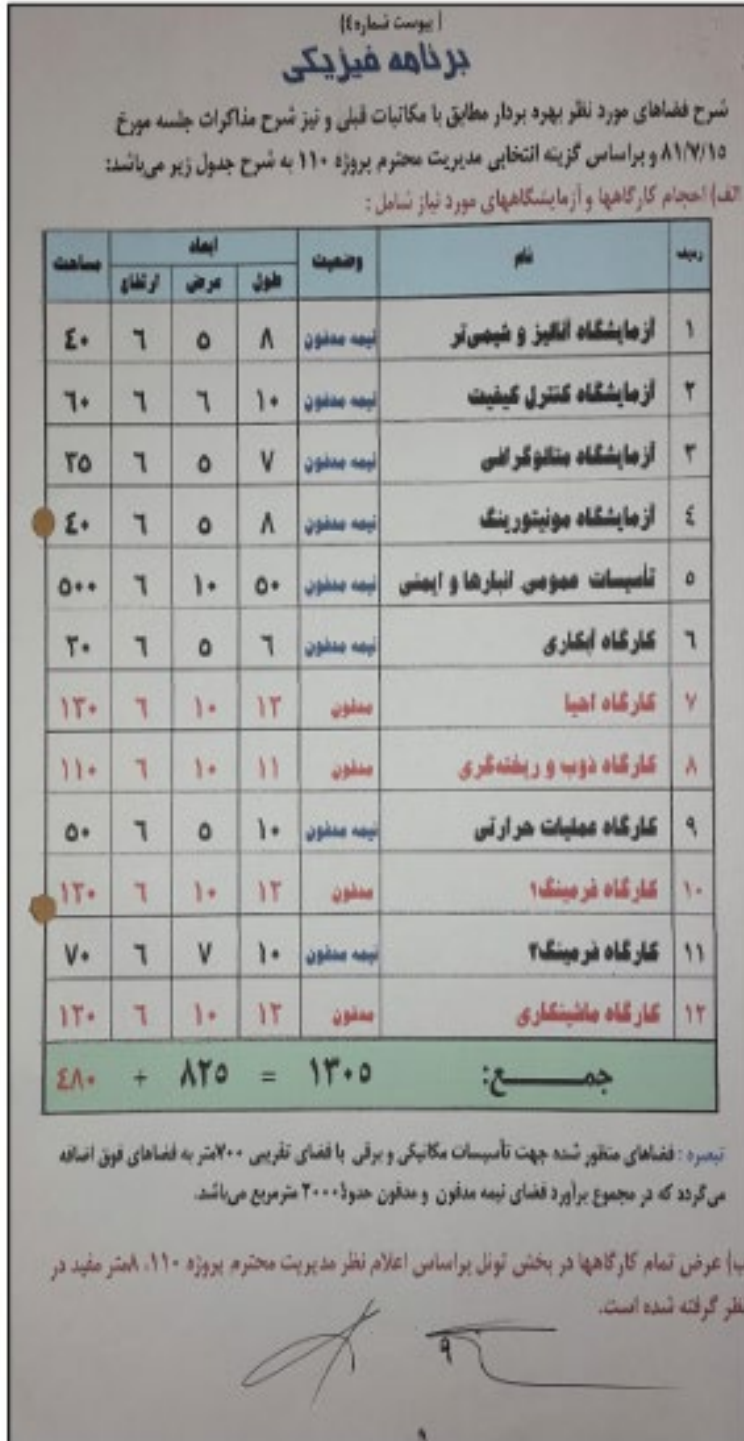 (پیوست شماره ٤)
برنامه فیزیکی
شرح فضاهای مورد نظر بهره بردار مطابق با مکاتبات قبلی و نیز شرح مذاکرات جلسه مورخ
۸۱/۷/۱۵ و براساس گزینه انتخابی مدیریت محترم پروژه ۱۱۰ به شرح جدول زیر می‌باشد:
الف) احجام کارگاهها و آزمایشگاههای مورد نیاز شامل :
ردیف نام وضعیت ابعاد مساحت
طول عرض ارتفاع
۱ آزمایشگاه آنالیز و شیمی‌تر نیمه مدفون ۸ ۵ ٦ ٤۰
۲ آزمایشگاه کنترل کیفیت نیمه مدفون ۱۰ ٦ ٦ ٦۰
۳ آزمایشگاه متالوگرافی نیمه مدفون ۷ ۵ ٦ ۳۵
٤ آزمایشگاه مونیتورینگ نیمه مدفون ۸ ۵ ٦ ٤۰
۵ تأسیسات عمومی انبارها و ایمنی نیمه مدفون ۵۰ ۱۰ ٦ ۵۰۰
٦ کارگاه آبکاری نیمه مدفون ٦ ۵ ٦ ۳۰
۷ کارگاه احیا مدفون ۱۳ ۱۰ ٦ ۱۳۰
۸ کارگاه ذوب و ریخته‌گری مدفون ۱۱ ۱۰ ٦ ۱۱۰
۹ کارگاه عملیات حرارتی نیمه مدفون ۱۰ ۵ ٦ ۵۰
۱۰ کارگاه فرمینگ۱ مدفون ۱۲ ۱۰ ٦ ۱۲۰
۱۱ کارگاه فرمینگ۲ نیمه مدفون ۱۰ ۷ ٦ ۷۰
۱۲ کارگاه ماشینکاری مدفون ۱۲ ۱۰ ٦ ۱۲۰
جمــــع: ۱۳۰۵ = ۸۲۵ + ٤۸۰
تبصره : فضاهای منظور شده جهت تأسیسات مکانیکی و برقی با فضای تقریبی ۷۰۰متر به فضاهای فوق اضافه
می‌گردد که در مجموع برآورد فضای نیمه مدفون و مدفون حدود۲۰۰۰ مترمربع می‌باشد.
ب) عرض تمام کارگاهها در بخش تونل براساس اعلام نظر مدیریت محترم پروژه ۱۱۰، ۸متر مفید در
نظر گرفته شده است.
۹
۹